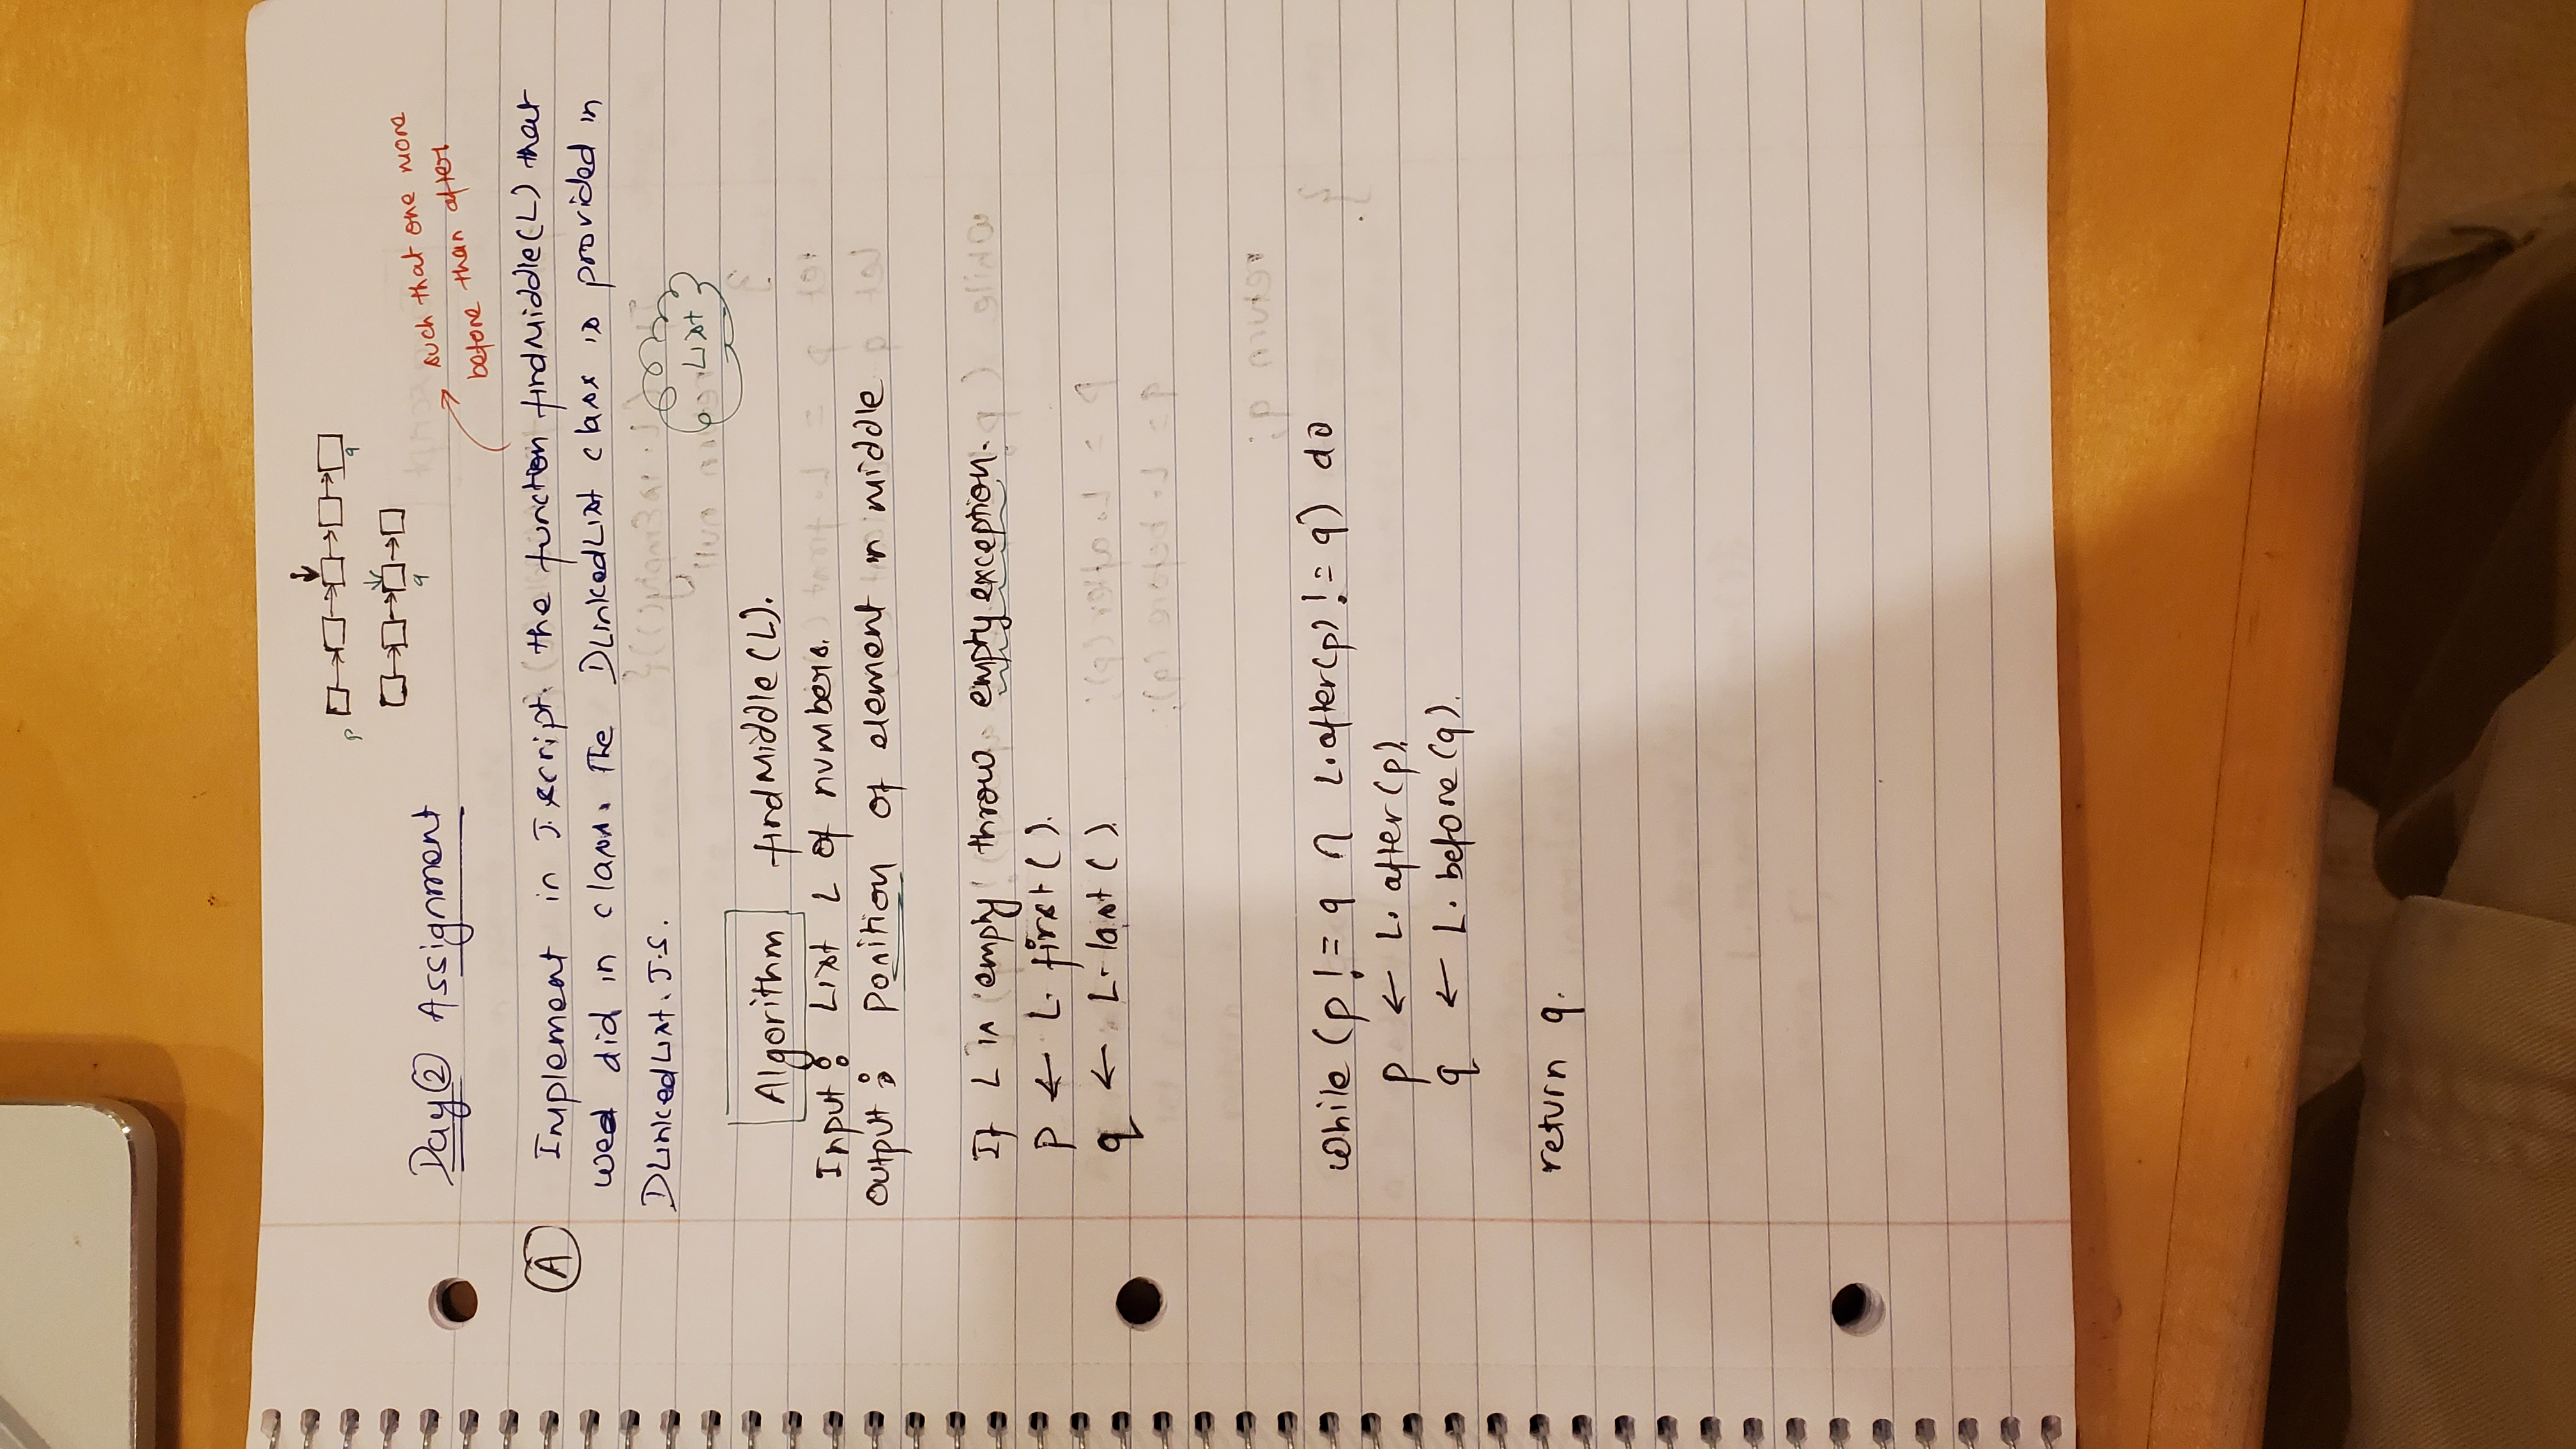 p
q
q
Day ② Assignment
such that one more
before than after
Ⓐ Implement in J.script. the function findMiddle(L) that
wed did in class. The DLinkedList class is provided in
DLinkedList.J.S.
List
Algorithm findMiddle(L).
Input : List L of numbers.
Output : Position of element in middle
If L is 'empty' throw empty exception.
P ← L. first( ).
q ← L. last( ).
while (p != q ∩ L.after(p) != q) do
p ← L. after(p).
q ← L. before(q).
return q.